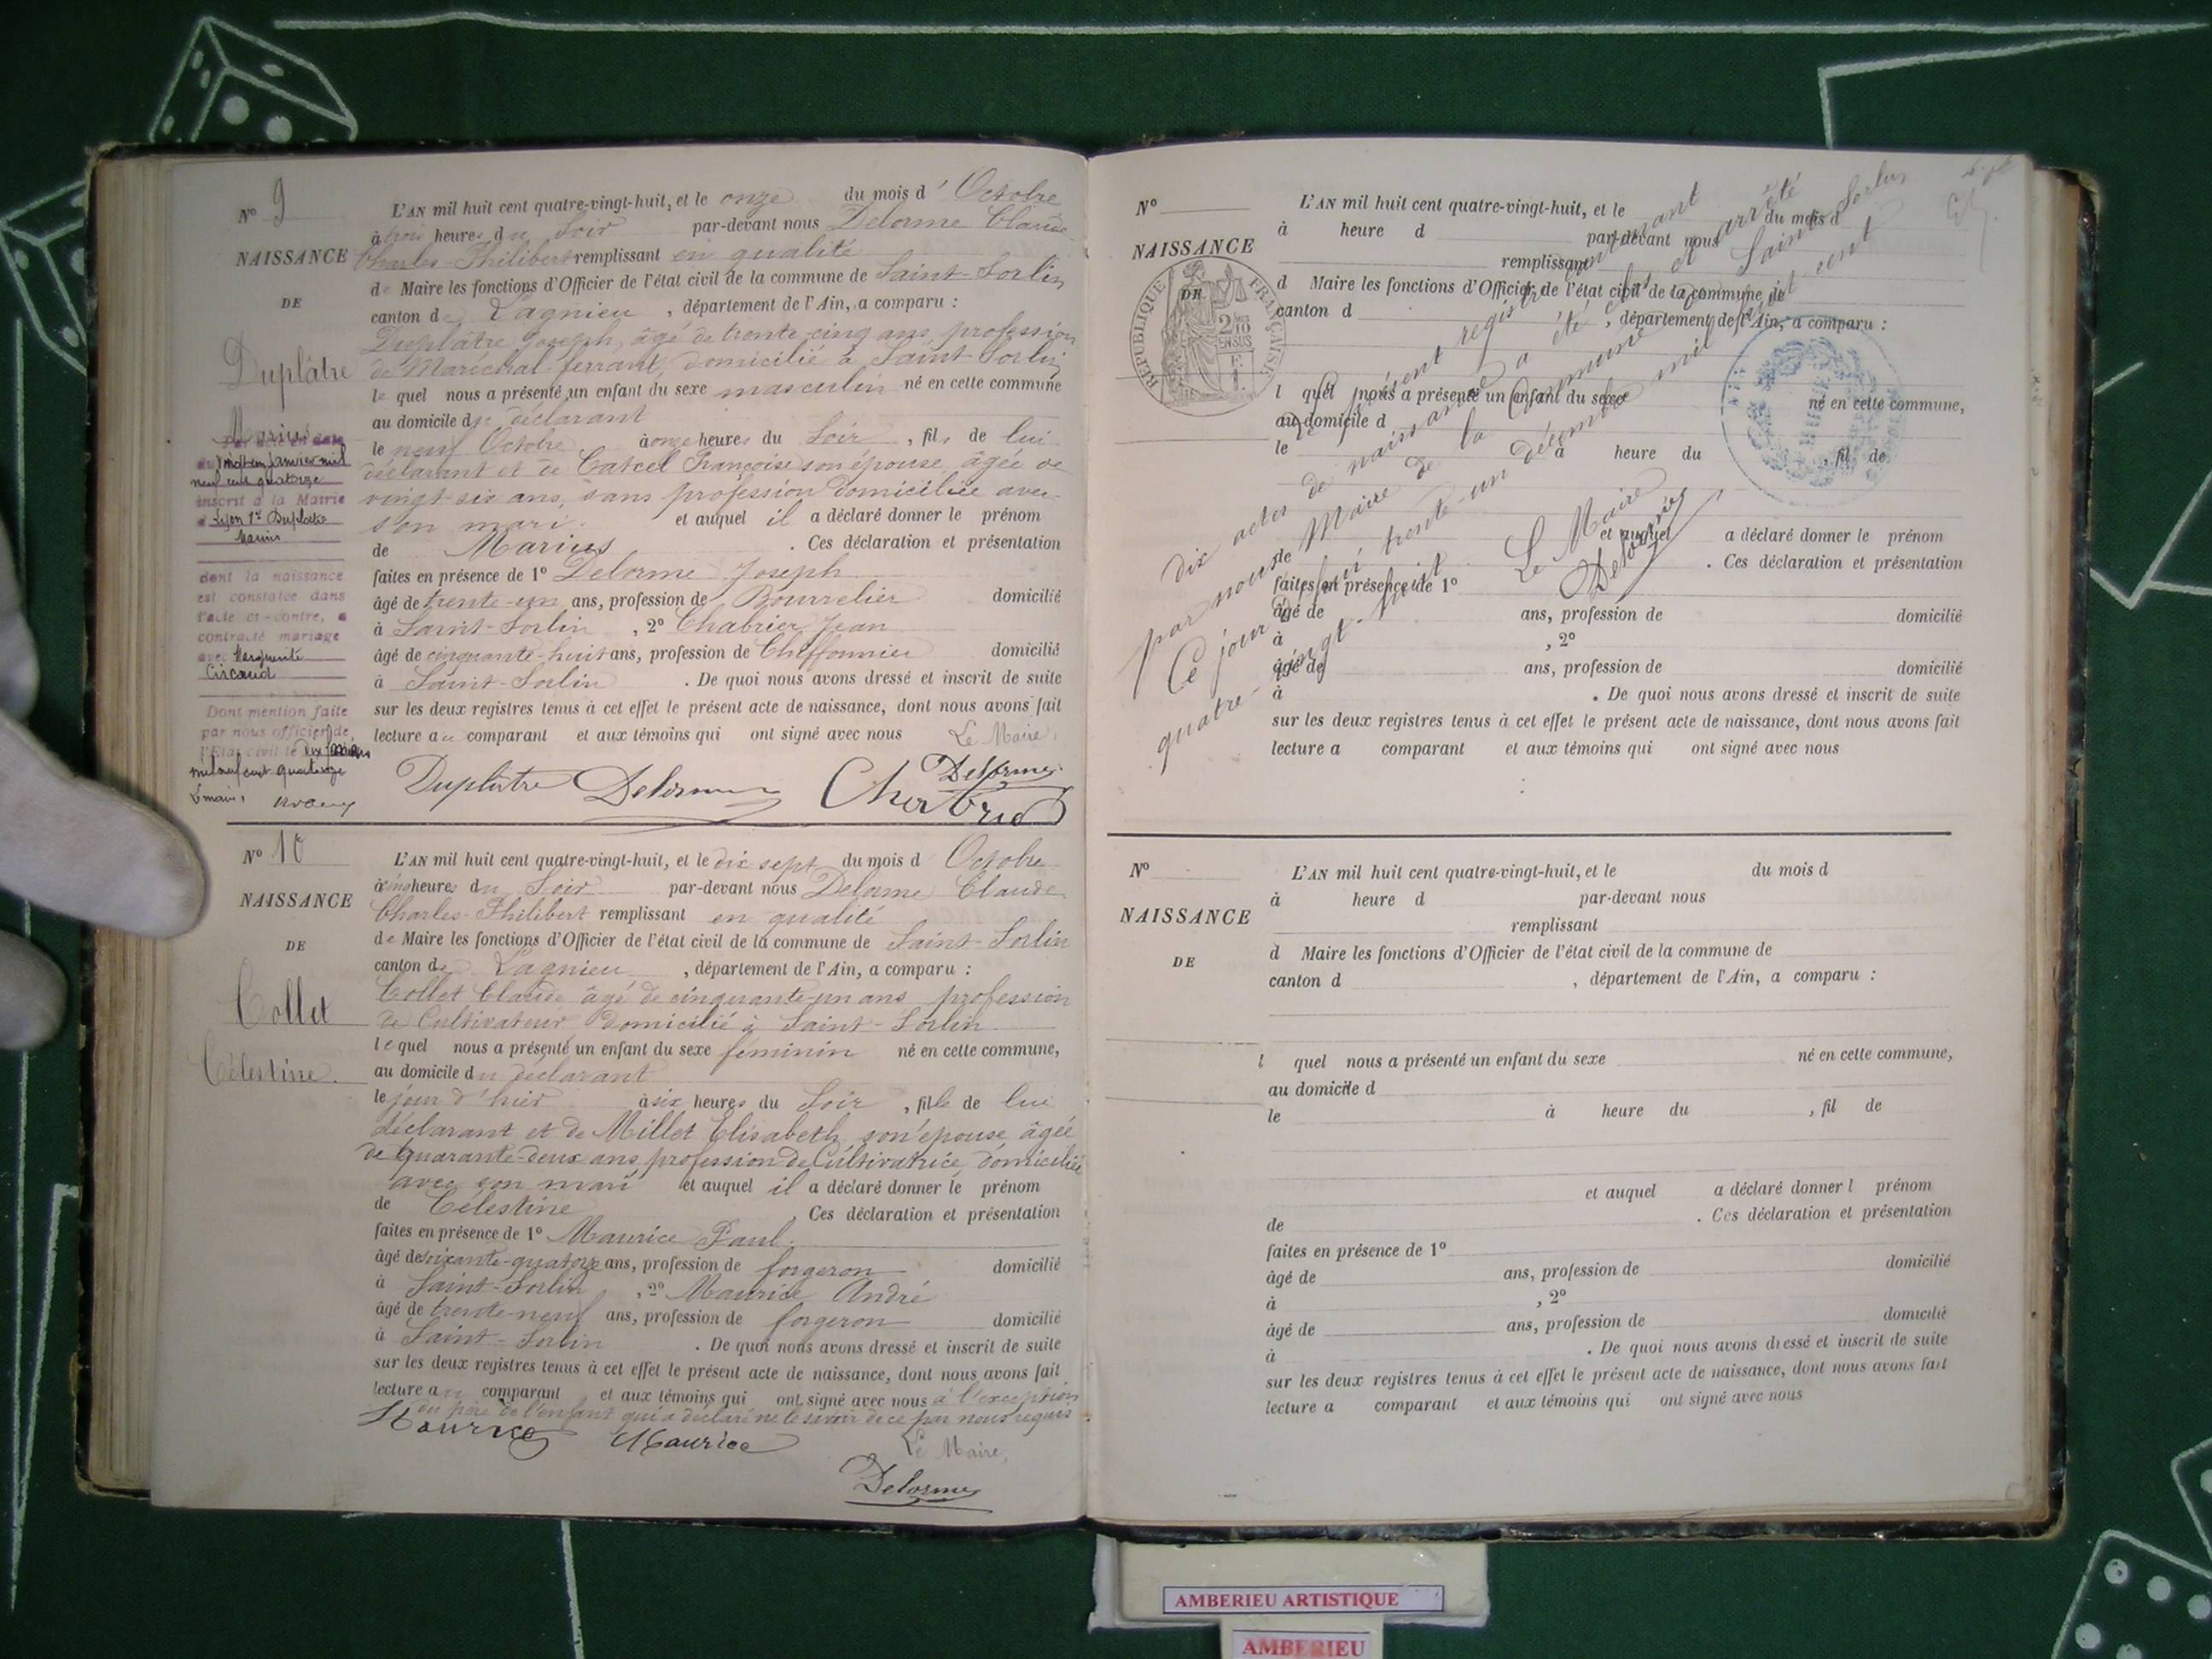 N° 9
NAISSANCE
DE
Duplâtre
Marius
Par acte en date
du vingt un janvier mil
neuf cent quatorze
inscrit à la Mairie
d Lyon 1er Duplatre
Marius
dont la naissance
est constatée dans
l'acte ci-contre, a
contracté mariage
avec Marguerite
Circaud
Dont mention faite
par nous officier de
l'Etat civil le
mil neuf cent quatorze
Le maire,
L'AN mil huit cent quatre-vingt-huit, et le onze du mois d'Octobre
à trois heures du Soir par-devant nous Delorme Claude
Charles-Philibert remplissant en qualité
de Maire les fonctions d'Officier de l'état civil de la commune de Saint-Sorlin
canton de Lagnieu, département de l'Ain, a comparu :
Duplâtre Joseph, âgé de trente-cinq ans, profession
de Maréchal-ferrant, domicilié à Saint-Sorlin
lequel nous a présenté un enfant du sexe masculin né en cette commune
au domicile du déclarant
le neuf Octobre à onze heures du Soir, fils de lui
déclarant et de Catcel Françoise son épouse âgée de
vingt-six ans, sans profession domiciliée avec
son mari. et auquel il a déclaré donner le prénom
de Marius. Ces déclaration et présentation
faites en présence de 1° Delorme Joseph
âgé de trente-un ans, profession de Bourrelier domicilié
à Saint-Sorlin, 2° Chabrier Jean
âgé de cinquante-huit ans, profession de Chiffonnier domicilié
à Saint-Sorlin. De quoi nous avons dressé et inscrit de suite
sur les deux registres tenus à cet effet le présent acte de naissance, dont nous avons fait
lecture au comparant et aux témoins qui ont signé avec nous Le Maire,
Duplâtre Delorme Delorme
N° 10
NAISSANCE
DE
Collet
Célestine.
L'AN mil huit cent quatre-vingt-huit, et le dix sept du mois d Octobre
à cinq heures du Soir par-devant nous Delorme Claude
Charles-Philibert remplissant en qualité
de Maire les fonctions d'Officier de l'état civil de la commune de Saint-Sorlin
canton de Lagnieu, département de l'Ain, a comparu :
Collet Claude âgé de cinquante-un ans profession
de Cultivateur domicilié à Saint-Sorlin
lequel nous a présenté un enfant du sexe féminin né en cette commune,
au domicile du déclarant
le jour d'hier à six heures du Soir, fille de lui
déclarant et de Millet Elisabeth son épouse âgée
de quarante-deux ans, profession de Cultivatrice, domiciliée
avec son mari et auquel il a déclaré donner le prénom
de Célestine. Ces déclaration et présentation
faites en présence de 1° Maurice Paul.
âgé de soixante-quatorze ans, profession de forgeron domicilié
à Saint-Sorlin, 2° Maurice André
âgé de trente-neuf ans, profession de forgeron domicilié
à Saint-Sorlin. De quoi nous avons dressé et inscrit de suite
sur les deux registres tenus à cet effet le présent acte de naissance, dont nous avons fait
lecture au comparant et aux témoins qui ont signé avec nous à l'exception
du père de l'enfant qui a déclaré ne le savoir de ce par nous requis
Maurice Maurice Le Maire,
Delorme
N°
NAISSANCE
DE
RÉPUBLIQUE FRANÇAISE
2/10 EN SUS
L'AN mil huit cent quatre-vingt-huit, et le du mois d
à heure d par-devant nous
remplissant
d Maire les fonctions d'Officier de l'état civil de la commune de
canton d , département de l'Ain, a comparu :
l quel nous a présenté un enfant du sexe né en cette commune,
au domicile d
le à heure du , fil de
et auquel a déclaré donner le prénom
de . Ces déclaration et présentation
faites en présence de 1°
âgé de ans, profession de domicilié
à , 2°
âgé de ans, profession de domicilié
à . De quoi nous avons dressé et inscrit de suite
sur les deux registres tenus à cet effet le présent acte de naissance, dont nous avons fait
lecture a comparant et aux témoins qui ont signé avec nous
Le présent registre contenant
dix actes de naissance a été clos et arrêté
par nous Maire de la Commune de Saint-Sorlin
Ce jourd'hui trente-un décembre mil huit cent
quatre-vingt-huit
Le Maire
Delorme
N°
NAISSANCE
DE
L'AN mil huit cent quatre-vingt-huit, et le du mois d
à heure d par-devant nous
remplissant
d Maire les fonctions d'Officier de l'état civil de la commune de
canton d , département de l'Ain, a comparu :
l quel nous a présenté un enfant du sexe né en cette commune,
au domicile d
le à heure du , fil de
et auquel a déclaré donner l prénom
de . Ces déclaration et présentation
faites en présence de 1°
âgé de ans, profession de domicilié
à , 2°
âgé de ans, profession de domicilié
à . De quoi nous avons dressé et inscrit de suite
sur les deux registres tenus à cet effet le présent acte de naissance, dont nous avons fait
lecture a comparant et aux témoins qui ont signé avec nous
AMBERIEU ARTISTIQUE
AMBERIEU